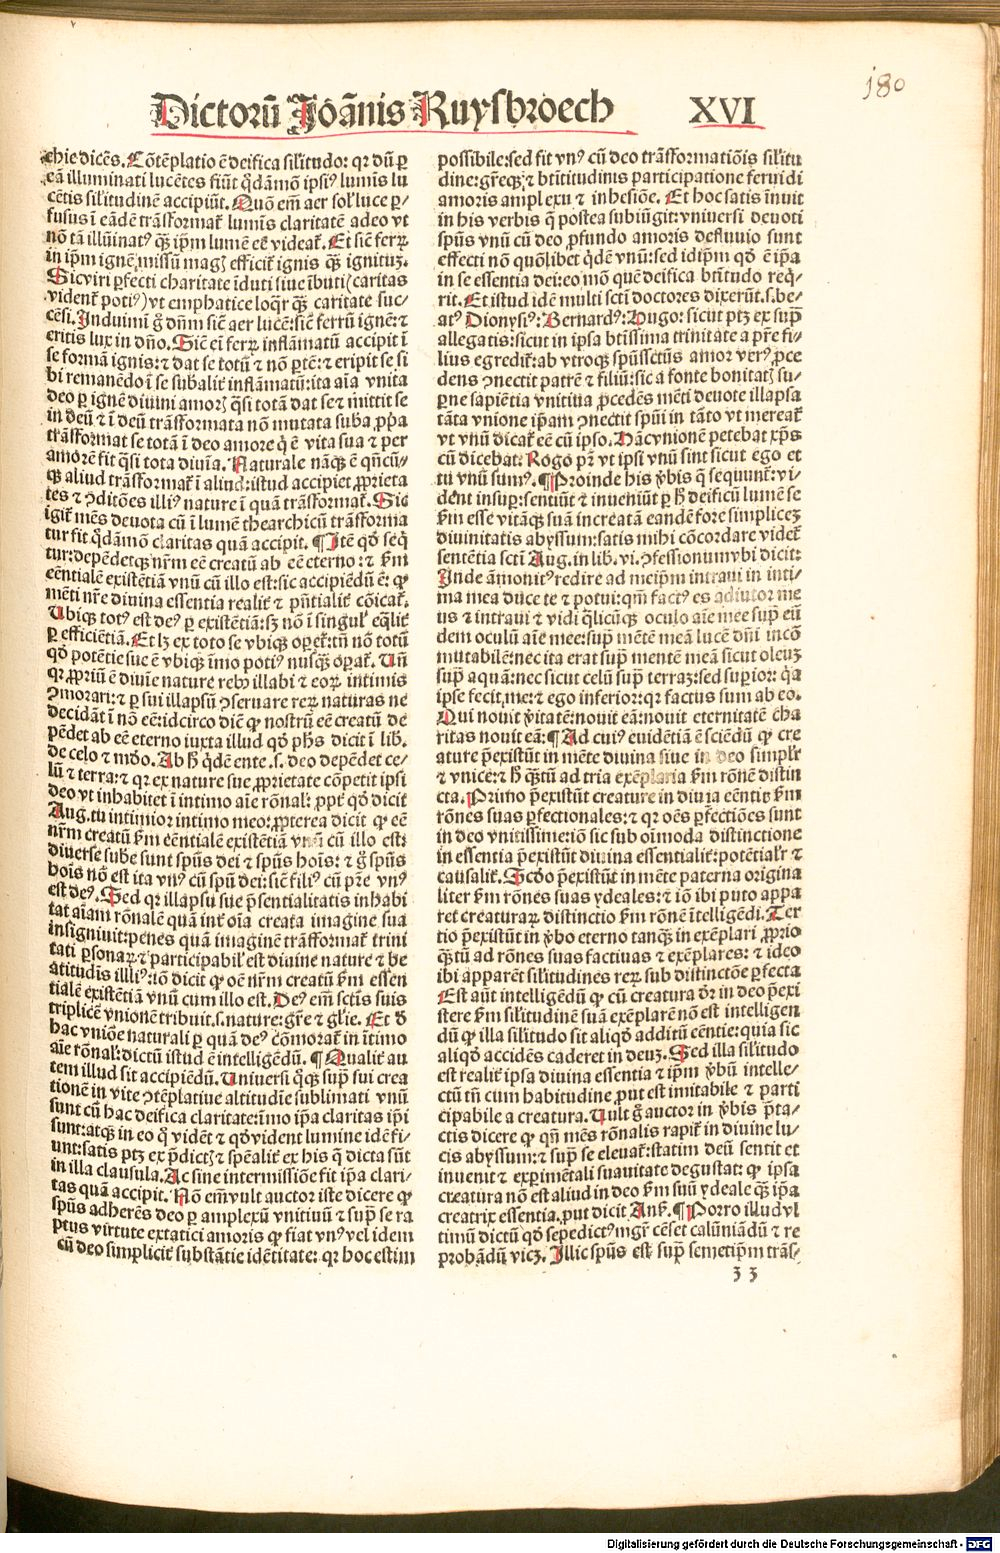 180
Dictorū Joānis Ruysbroech XVI
chie dicēs. Cōtēplatio ē deifica sil'itudo: qr dū ꝑ
eā illuminati lucētes fiūt q̇dāmō ipsiꝰ lumīs lu
cētis sil'itudinē accipiūt. Quō em̄ aer sol' luce ꝑ⸗
fusus ī eādē trāsformat̄ lumīs claritatē adeo vt
nō tā illūinatꝰ qꝫ ip̄m lumē eē videat̄. Et siē ferꝝ
in ip̄m ignē missū magꝭ efficit̄ ignis qꝫ ignituꝫ.
Sic viri ꝑfecti charitate īduti siue ībuti (caritas
vident̄ potiꝰ) vt emphatice loqr̄ qꝫ caritate suc⸗
cēsi. Induimī g̊ dn̄m siē aer lucē: siē ferrū ignē: ⁊
eritis lux in dn̄o. Siē ei ferꝝ inflamātū accipit ī
se formā ignis: ⁊ dat se totū ⁊ nō ꝑtē: ⁊ eripit se si
bi remanēdo ī se subalit̄ inflāmatū: ita aīa vnita
deo ꝑ ignē diuini amorꝭ q̄si totā dat se ⁊ īmittit se
in deū ⁊ ī deū trāsformata nō mutata suba ꝓp̄a
trāsformat se totā ī deo amore q̄ ē vita sua ⁊ per
amorē fit q̄si tota diuīa. Naturale nāqꝫ ē qn̄cū⸗
qꝫ aliud trāsformat̄ ī aliud: istud accipiet ꝓprieta
tes ⁊ ꝯditōes illiꝰ nature ī quā trāsformat̄. Sic
igit̄ mēs deuota cū ī lumē thearchicū trāsforma
tur fit q̇dāmō claritas quā accipit. ¶ Itē qd̓ seq̄
tur: depēdetqꝫ nr̄m eē creatū ab eē eterno: ⁊ ẜm
eēntialē existētiā vnū cū illo est: sic accipiēdū ē: ꝙ
mēti nr̄e diuina essentia realit̄ ⁊ p̄ntialit̄ cōicat̄.
Ubiqꝫ totꝰ est deꝰ ꝑ existētiā: sꝫ nō ī singul' eq̄lit̄
ꝑ efficiētiā. Et lꝫ ex toto se vbiqꝫ oꝑet̄: tn̄ nō totū
qd̓ potētie sue ē vbiqꝫ īmo potiꝰ nusqꝫ oꝑat̄. Uñ
qr ꝓpriū ē diuīe nature rebꝰ illabi ⁊ eoꝝ intimis
ꝯmorari: ⁊ ꝑ sui illapsū ꝯseruare reꝝ naturas ne
decidāt ī nō eē: idcirco diē ꝙ nostrū eē creatū de
pēdet ab eē eterno iuxta illud qd̓ ph̄s dicit ī lib.
de celo ⁊ mūdo. Ab h̄ q̇dē ente .s. deo depēdet ce⸗
lū ⁊ terra: ⁊ qr ex nature sue ꝓprietate cōpetit ipsi
deo vt inhabitet ī intimo aīe rōnal': ꝓpt̄ qd̓ dicit
Aug. tu intimior intimo meo: ꝓpterea dicit ꝙ eē
nr̄m creatū ẜm eēntialē existētiā vnū cū illo est:
diuerse sube sunt spūs dei ⁊ spūs hoīs: ⁊ g̊ spūs
hoīs nō est ita vnꝰ cū spū dei: siē filiꝰ cū pr̄e vnꝰ
est deꝰ. Sed qr illapsu sue p̄sentialitatis inhabi
tat aīam rōnalē quā int̄ oīa creata imagine sua
insigniuit: penes quā imaginē trāsformat̄ trini
tati ꝑsonaꝝ ⁊ participabil' est diuine nature ⁊ be
atitudīs illiꝰ: iō dicit ꝙ oē nr̄m creatū ẜm essen
tialē existētiā vnū cum illo est. Deꝰ em̄ sctīs suis
triplicē vnionē tribuit .s. nature: gr̄e ⁊ gl'ie. Et d̓
hac vniōe naturali ꝑ quā deꝰ cōmorat̄ in ītimo
aīe rōnal': dictū istud ē intelligēdū. ¶ Qualit̄ au
tem illud sit accipiēdū. Uniuersi q̇qꝫ sup̄ sui crea
tionē in vite ꝯtēplatiue altitudīe sublimati vnū
sunt cū hac deifica claritate: īmo ip̄a claritas ip̄i
sunt: atqꝫ in eo q̇ vidēt ⁊ qd̓ vident lumine idē fi⸗
unt: satis ptꝫ ex p̄dictꝭ ⁊ spēalit̄ ex his q̄ dicta sūt
in illa clausula. Ac sine intermissiōe fit ip̄a clari⸗
tas quā accipit. Nō em̄ vult auctor iste dicere ꝙ
spūs adherēs deo ꝑ amplexū vnitiuū ⁊ sup̄ se ra
ptus virtute extatici amoris ꝙ fiat vnꝰ vel idem
cū deo simplicit̄ substātie idētitate: qr hoc est im
possibile: sed fit vnꝰ cū deo trāsformatiōis sil'itu
dine: gr̄eqꝫ ⁊ btītitudinis participatione feruidi
amoris amplexu ⁊ inhesiōe. Et hoc satis īnuit
in his verbis q̄ postea subiūgit: vniuersi deuoti
spūs vnū cū deo ꝓfundo amoris defluuio sunt
effecti nō quōlibet q̇dē vnū: sed idip̄m qd̓ ē ip̄a
in se essentia dei: eo mō quē deifica btītudo req̇⸗
rit. Et istud idē multi scti doctores dixerūt .s. be⸗
atꝰ Dionysiꝰ: Bernardꝰ: Hugo: sicut ptꝫ ex sup̄
allegatis: sicut in ipsa btīssima trinitate a pr̄e fi⸗
lius egredit̄: ab vtroqꝫ spūssctūs amor verꝰ ꝓce
dens ꝯnectit patrē ⁊ filiū: sic a fonte bonitatꝭ su⸗
ꝑne sapiētia vnitiua ꝓcedēs mēti deuote illapsa
tāta vnione ip̄am ꝯnectit spūi in tāto vt mereat̄
vt vnū dicat̄ eē cū ipso. Hāc vnionē petebat xp̄s
cū dicebat. Rogo pr̄ vt ipsi vnū sint sicut ego et
tu vnū sumꝰ. ¶ Proinde his v̓bis q̄ sequunt̄: vi⸗
dent insuꝑ: sentiūt ⁊ inueniūt ꝑ h̄ deificū lumē se
ẜm esse vitāqꝫ suā increatā eandē fore simpliceꝫ
diuinitatis abyssum: satis mihi cōcordare videt̄
sentētia scti Aug. in lib. vi. ꝯfessionum vbi dicit:
Inde āmonitꝰ redire ad meip̄m intraui in inti⸗
ma mea duce te ⁊ potui: qm̄ factꝰ es adiutor me
us ⁊ intraui ⁊ vidi q̄licūqꝫ oculo aīe mee sup̄ eū
dem oculū aīe mee: sup̄ mētē meā lucē dn̄i incō
mutabilē: nec ita erat sup̄ mentē meā sicut oleuꝫ
sup̄ aquā: nec sicut celū sup̄ terraꝫ: sed suꝑior: q̇a
ipse fecit me: ⁊ ego inferior: qr factus sum ab eo.
Qui nouit v̓itatē: nouit eā: nouit eternitatē cha
ritas nouit eā: ¶ Ad cuiꝰ euidētiā ē sciēdū ꝙ cre
ature p̄existūt in mēte diuina siue in deo simplr̄
⁊ vnice: ⁊ h̄ qꝫtū ad tria exēplaria ẜm rōnē distin
cta. Primo p̄existūt creature in diuīa eēntia ẜm
rōnes suas ꝑfectionales: ⁊ qr oēs ꝑfectiōes sunt
in deo vnitissime: iō sic sub oīmoda distinctione
in essentia p̄existūt diuina essentialit̄: potētialr̄ ⁊
causalit̄. Scd̓o p̄existūt in mēte paterna origina
liter ẜm rōnes suas ydeales: ⁊ iō ibi puto appa
ret creaturaꝝ distinctio ẜm rōnē ītelligēdi. Ter
tio p̄existūt in v̓bo eterno tanqꝫ in exēplari ꝓprio
qꝫtū ad rōnes suas factiuas ⁊ exēplares: ⁊ ideo
ibi apparēt sil'itudines reꝝ sub distinctōe ꝑfecta
Est aūt intelligēdū ꝙ cū creatura d̓r in deo p̄exi
stere ẜm sil'itudinē suā exēplarē nō est intelligen
dū ꝙ illa sil'itudo sit aliqd̓ additū eēntie: quia sic
aliqd̓ accidēs caderet in deuꝫ. Sed illa sil'itudo
est realit̄ ipsa diuina essentia ⁊ ip̄m v̓bū intelle⸗
ctū tn̄ cum habitudine ꝓut est imitabile ⁊ parti
cipabile a creatura. Uult g̊ auctor in v̓bis p̄ta⸗
ctis dicere ꝙ qn̄ mēs rōnalis rapit̄ in diuine lu⸗
cis abyssum: ⁊ sup̄ se eleuat̄: statim deū sentit et
inuenit ⁊ exꝑimētali suauitate degustat: ꝙ ipsa
creatura nō est aliud in deo ẜm suū ydeale qꝫ ip̄a
creatrix essentia. ꝓut dicit Ans̄. ¶ Porro illud vl
timū dictū qd̓ sepedictꝰ mgr̄ cēset calūniādū ⁊ re
probādū viꝫ. Illic spūs est sup̄ semetip̄m trās⸗
33
Digitalisierung gefördert durch die Deutsche Forschungsgemeinschaft - DFG